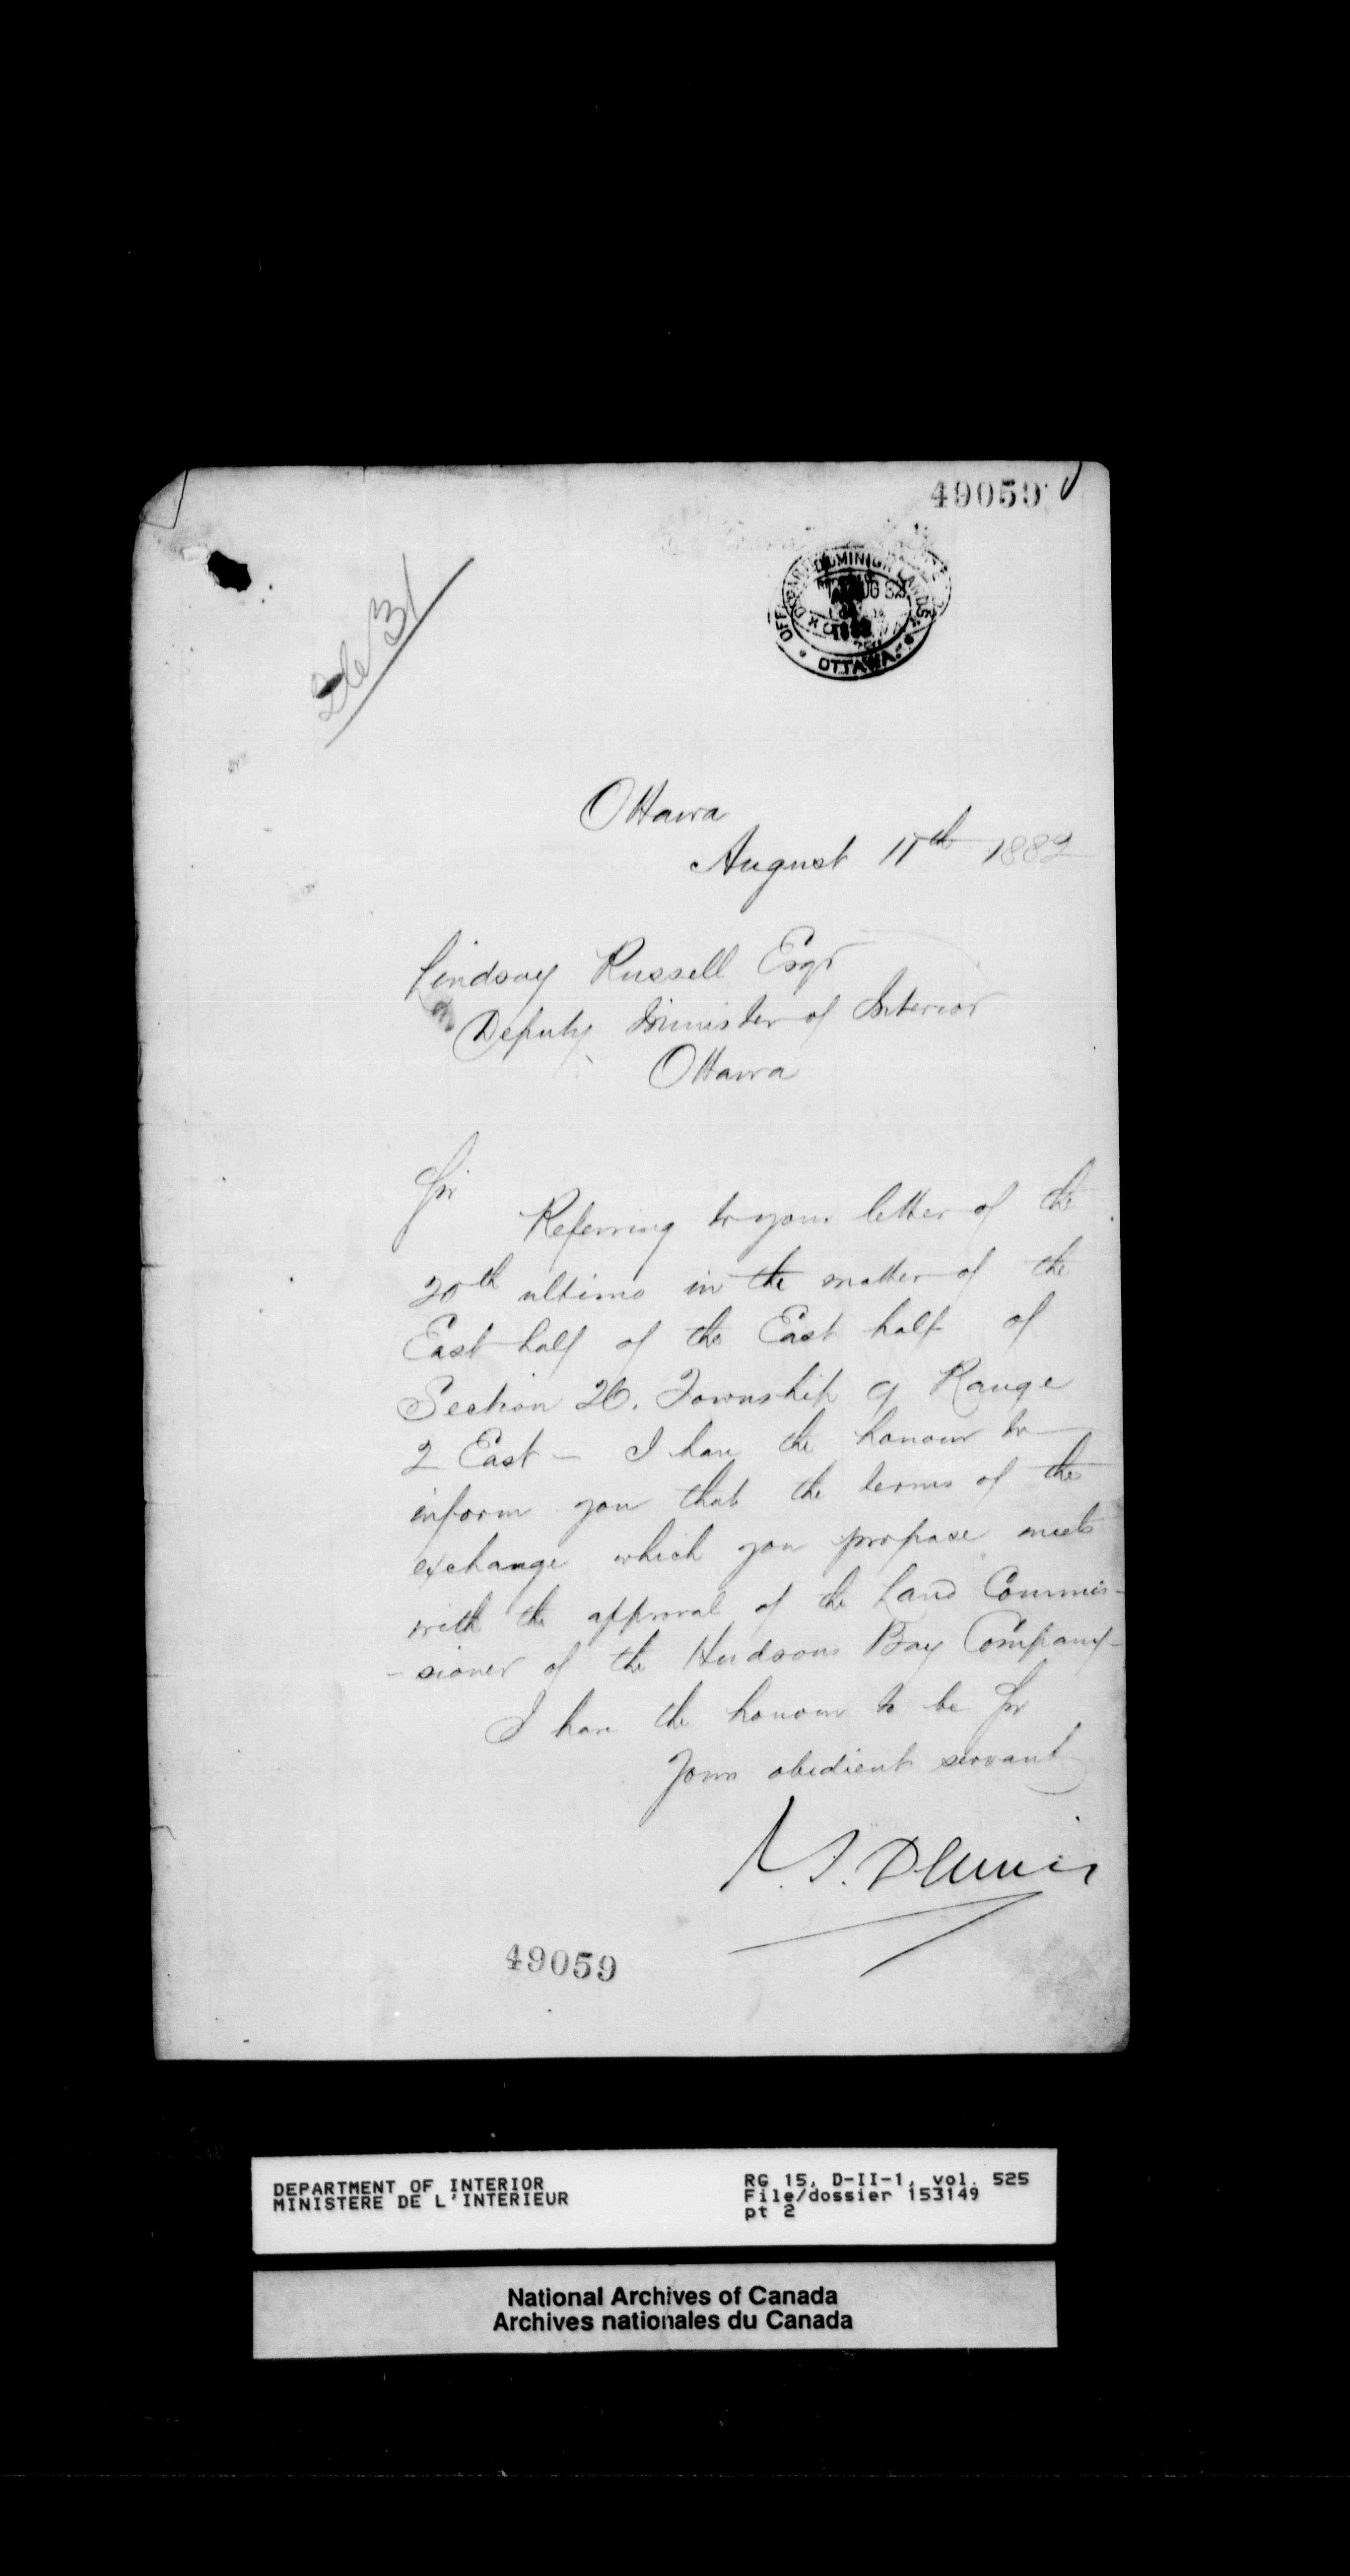 49059
DOMINION LANDS
OTTAWA
Ottawa
August 11th 1882
Lindsay Russell Esqr
Deputy Minister of Interior
Ottawa
Sir
Referring to your letter of the
20th ultimo in the matter of the
East half of the East half of
Section 26. Township 9 Range
2 East — I have the honour to
inform you that the terms of the
exchange which you propose meets
with the approval of the Land Commis-
-sioner of the Hudsons Bay Company-
I have the honour to be Sir
Your obedient servant
Dennis
49059
DEPARTMENT OF INTERIOR
MINISTERE DE L'INTERIEUR
RG 15, D-II-1, vol. 525
File/dossier 153149
pt 2
National Archives of Canada
Archives nationales du Canada